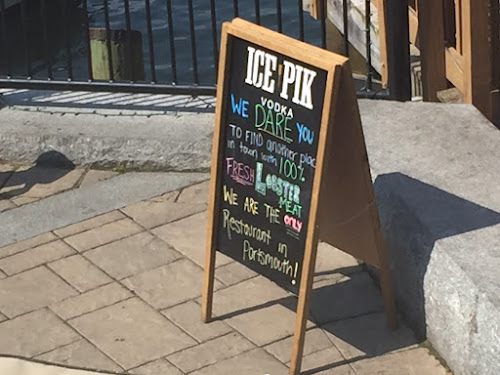 ICE PIK
VODKA
WE DARE YOU
TO FIND another place
in town with 100%
FRESH LOBSTER MEAT
WE ARE THE only
Restaurant in
Portsmouth!